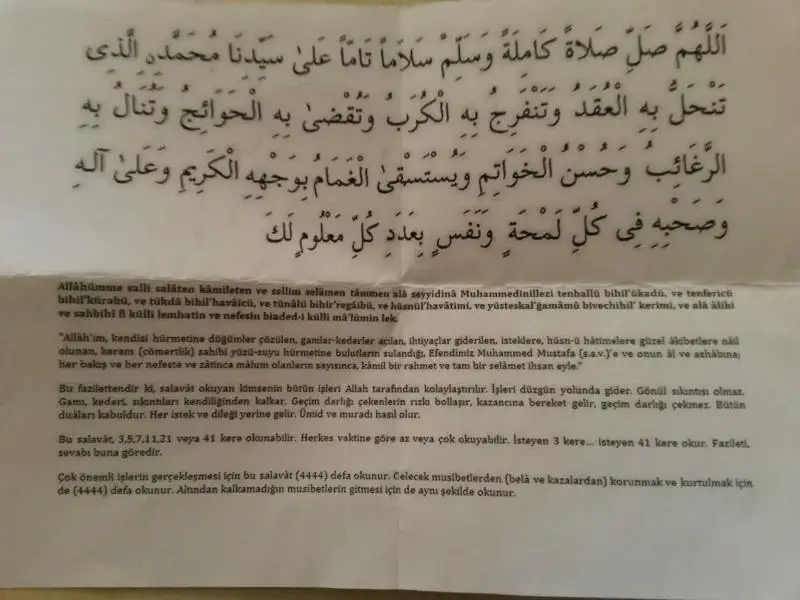 اَللَّهُمَّ صَلِّ صَلاَةً كَامِلَةً وَسَلِّمْ سَلاَماً تَامّاً عَلىٰ سَيِّدِنَا مُحَمَّدٍنِ الَّذِى
تَنْحَلُّ بِهِ الْعُقَدُ وَتَنْفَرِجُ بِهِ الْكُرَبُ وَتُقْضىٰ بِهِ الْحَوَائِجُ وَتُنَالُ بِهِ
الرَّغَائِبُ وَحُسْنُ الْخَوَاتِمِ وَيُسْتَسْقىٰ الْغَمَامُ بِوَجْهِهِ الْكَرِيمِ وَعَلىٰ آلِهِ
وَصَحْبِهِ فِى كُلِّ لَمْحَةٍ وَنَفَسٍ بِعَدَدِ كُلِّ مَعْلُومٍ لَكَ
Allâhümme salli salâten kâmileten ve sellim selâmen tâmmen alâ seyyidinâ Muhammedinillezi tenhallü bihil'ükadü, ve tenfericü
bihil'kürabü, ve tükdâ bihil'havâicü, ve tünâlü bihir'regâibü, ve hüsnül'havâtimi, ve yüsteskal'ğamâmü bivechihil' kerimi, ve alâ âlihi
ve sahbihi fi külli lemhatin ve nefesin biaded-i külli mâ'lûmin lek.
"Allâh'ım, kendisi hürmetine düğümler çözülen, gamlar-kederler açılan, ihtiyaçlar giderilen, isteklere, hüsn-ü hâtimelere güzel âkibetlere nâil
olunan, kerem (cömertlik) sahibi yüzü-suyu hürmetine bulutların sulandığı, Efendimiz Muhammed Mustafa (s.a.v.)'e ve onun âl ve ashâbına;
her bakış ve her nefeste ve zâtinca mâlum olanların sayısınca, kâmil bir rahmet ve tam bir selâmet ihsan eyle."
Bu faziletlendir ki, salavât okuyan kimsenin bütün işleri Allah tarafından kolaylaştırılır. İşleri düzgün yolunda gider. Gönül sıkıntısı olmaz.
Gamı, kederi, sıkıntıları kendiliğinden kalkar. Geçim darlığı çekenlerin rızkı bollaşır, kazancına bereket gelir, geçim darlığı çekmez. Bütün
duâları kabuldur. Her istek ve dileği yerine gelir. Ümid ve muradı hasıl olur.
Bu salavât, 3,5,7,11,21 veya 41 kere okunabilir. Herkes vaktine göre az veya çok okuyabilir. İsteyen 3 kere... isteyen 41 kere okur. Fazileti,
sevabı buna göredir.
Çok önemli işlerin gerçekleşmesi için bu salavât (4444) defa okunur. Gelecek musibetlerden (belâ ve kazalardan) korunmak ve kurtulmak için
de (4444) defa okunur. Altından kalkamadığın musibetlerin gitmesi için de aynı şekilde okunur.